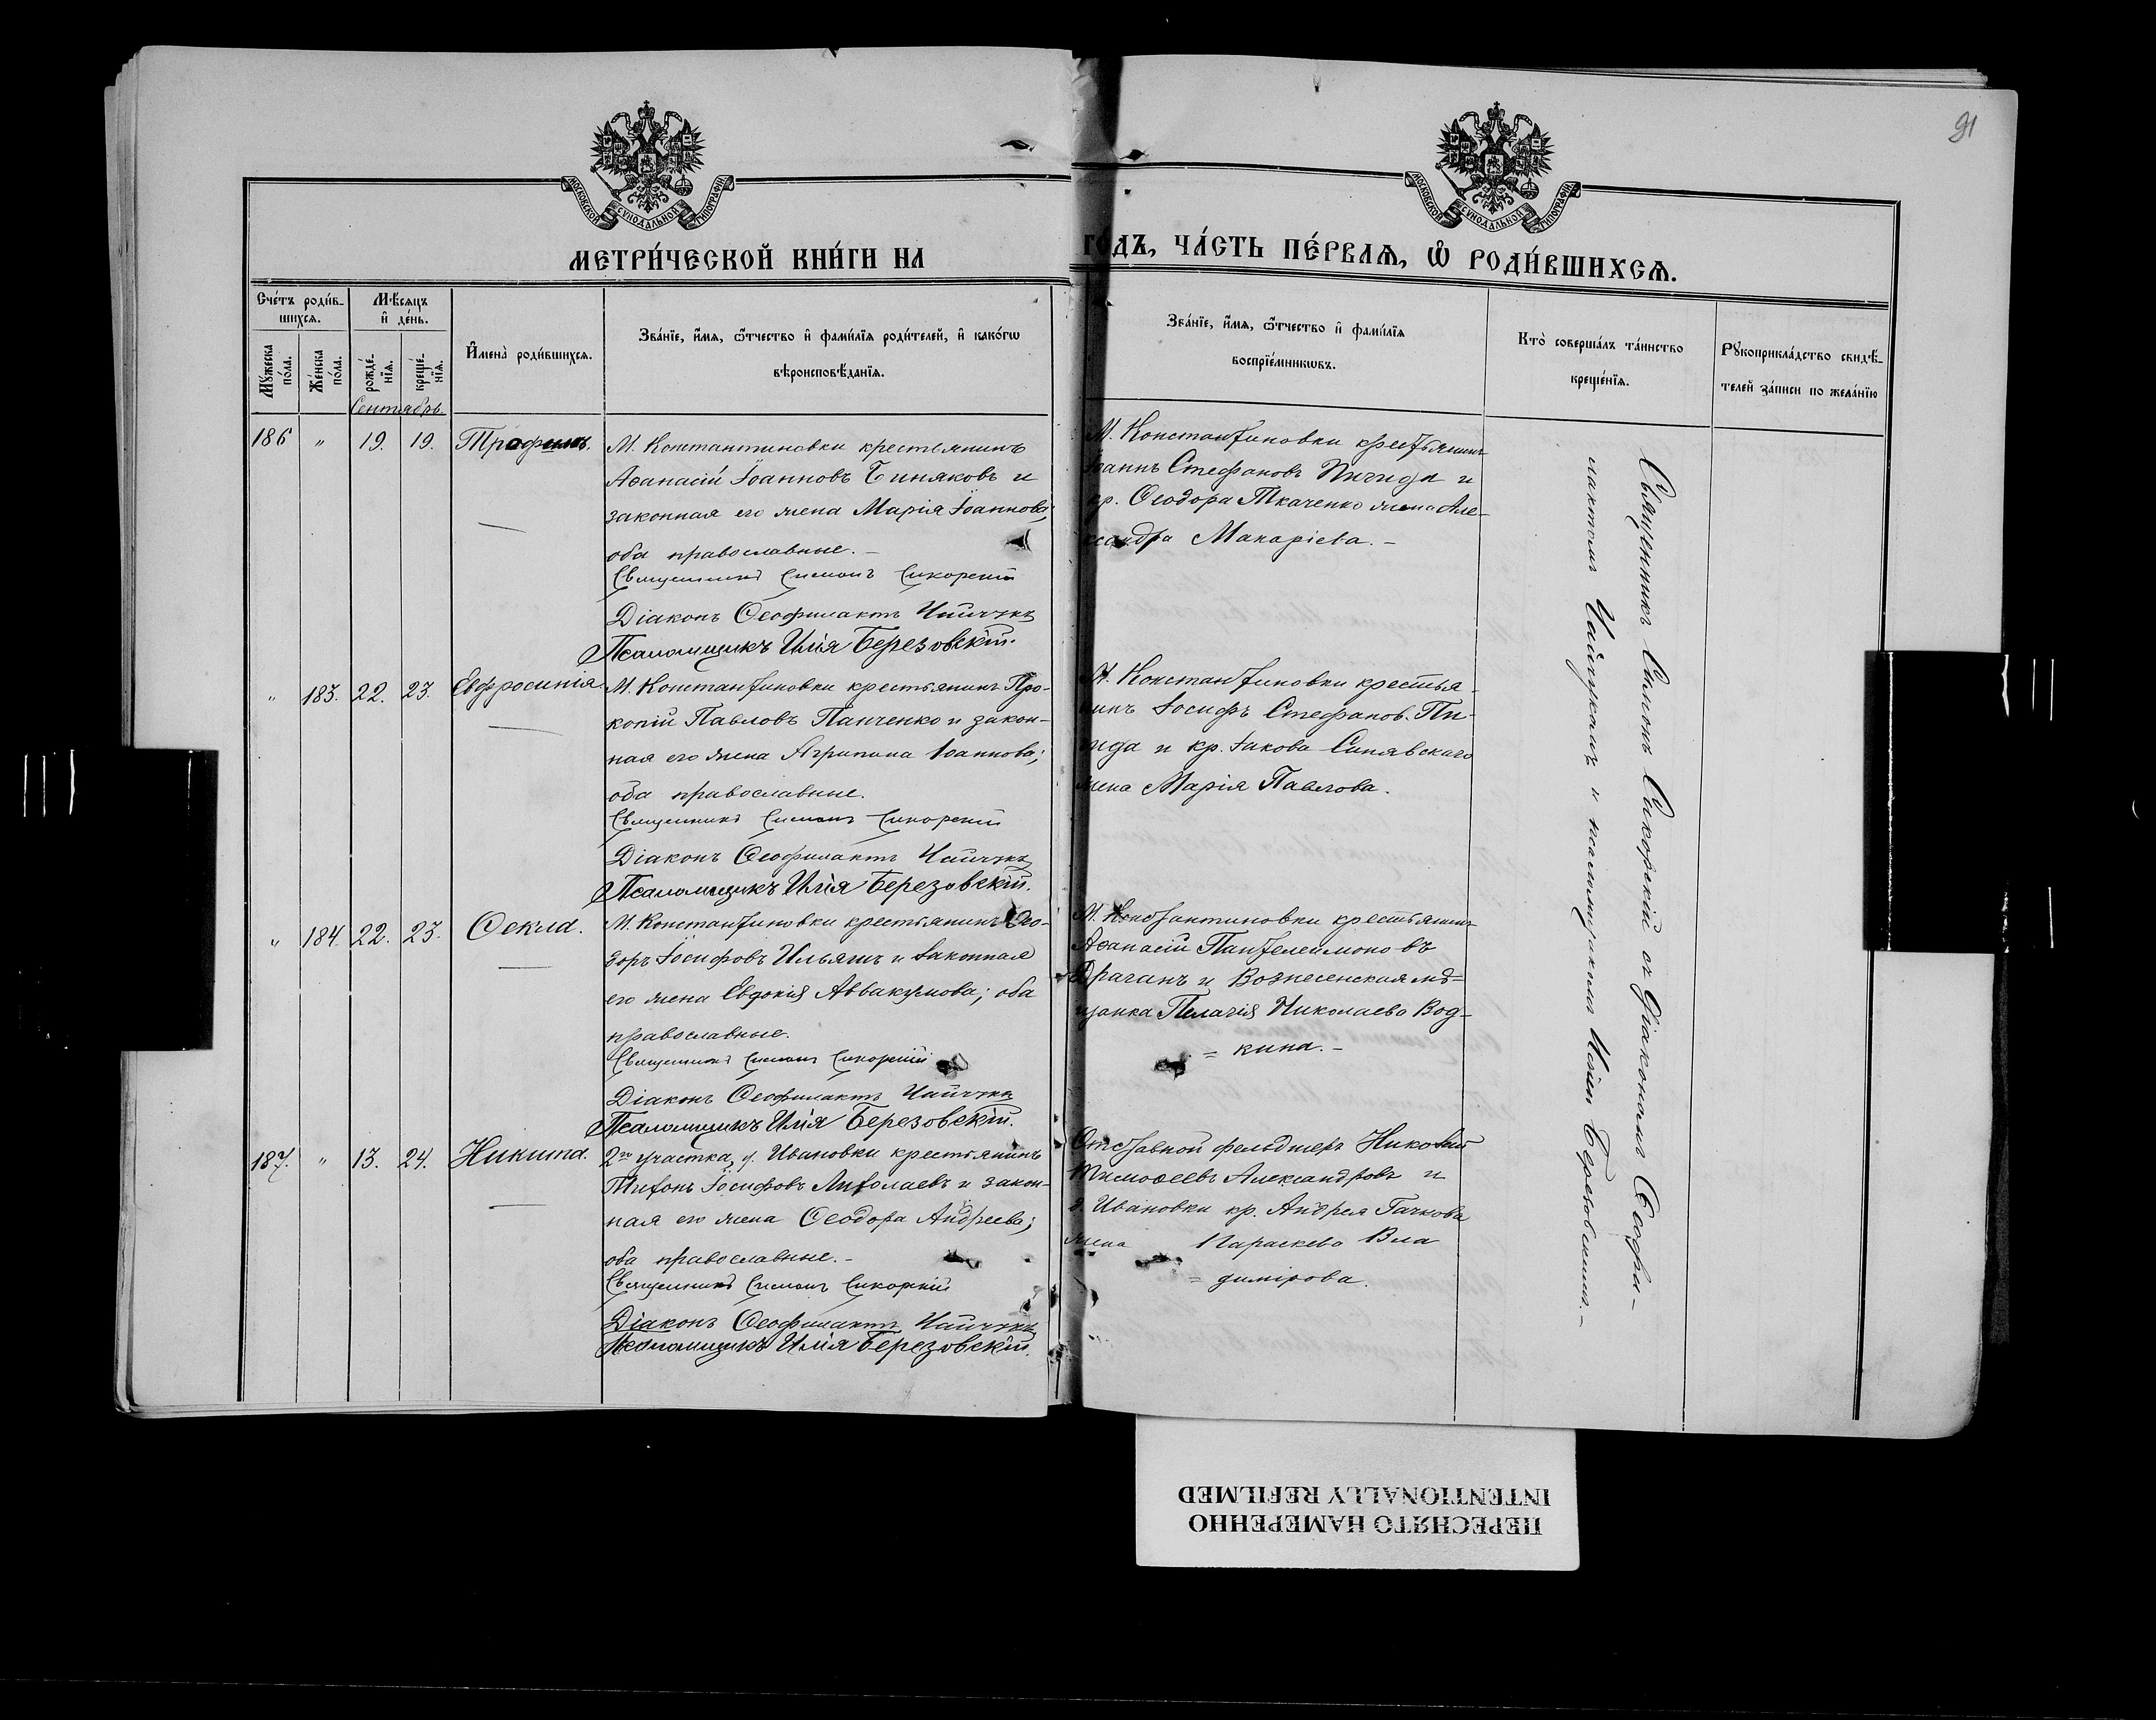 91
МОСКОВСКОЙ СУНОДАЛЬНОЙ ТИПОГРАФІИ
МОСКОВСКОЙ СУНОДАЛЬНОЙ ТИПОГРАФІИ
МЕТРИ́ЧЕСКОЙ КНИ́ГИ НА
ГО́ДЪ, ЧА́СТЬ ПЕ́РВАѦ, Ѡ҆ РОДИ́ВШИХСѦ.
Сче́тъ роди́в-
шихсѧ.
Мѣ́сѧцъ
и҆ де́нь.
Мꙋ́жеска
по́ла.
Же́нска
по́ла.
рожде́-
нїѧ.
креще́-
нїѧ.
И҆мена̀ роди́вшихсѧ.
Зва́нїе, и҆́мѧ, ѻ҆́тчество и҆ фами́лїѧ роди́телей, и҆ како́гѡ
вѣроисповѣ́данїѧ.
Зва́нїе, и҆́мѧ, ѻ҆́тчество и҆ фами́лїѧ
воспрїе́мникѡвъ.
Кто̀ соверша́лъ та́инство
креще́нїѧ.
Рꙋкоприкла́дство свидѣ́-
телей за́писи по жела́нїю
Сентябрь.
186 " 19. 19. Трофимъ.
М. Константиновки крестьянинъ
Аѳанасій Іоанновъ Биняковъ и
законная его жена Марія Іоаннова;
оба православные. –
Священникъ Симонъ Сикорскій
Діаконъ Ѳеофилактъ Чайчукъ
Псаломщикъ Илія Березовскій.
М. Константиновки крестьянинъ
Іоаннъ Стефановъ Пигида и
кр. Ѳеодора Ткаченко жена Але-
ксандра Макаріева. –
" 183. 22. 23. Евфросинія
М. Константиновки крестьянинъ Про-
копій Павловъ Панченко и закон-
ная его жена Агрипина Іоаннова;
оба православные.
Священникъ Симонъ Сикорскій
Діаконъ Ѳеофилактъ Чайчукъ
Псаломщикъ Илія Березовскій.
М. Константиновки крестья-
нинъ Іосифъ Стефанов. Пи-
гида и кр. Іакова Синявскаго
жена Марія Павлова.
" 184. 22. 23. Ѳекла.
М. Константиновки крестьянинъ Ѳео-
доръ Іосифовъ Ильяшъ и законная
его жена Евдокія Аввакумова; оба
православные.
Священникъ Симонъ Сикорскій
Діаконъ Ѳеофилактъ Чайчукъ
Псаломщикъ Илія Березовскій.
М. Константиновки крестьянинъ
Аѳанасій Пантелеимоновъ
Драганъ и Вознесенская мѣ-
щанка Пелагія Николаева Вод-
= кина. –
187. " 13. 24. Никита.
2го участка, д. Ивановки крестьянинъ
Тихонъ Іосифовъ и закон-
ная его жена Ѳеодора Андреева;
оба православные. –
Священникъ Симонъ Сикорскій
Діаконъ Ѳеофилактъ Чайчукъ
Псаломщикъ Илія Березовскій.
Отставной фельдшеръ Николай
Тимоѳеевъ Александровъ и
д. Ивановки кр. Андрея Гачкова
жена Параскева Вла
= димірова.
Священникъ Симонъ Сикорскій съ діакономъ Ѳеофи-
лактомъ Чайчукомъ и псаломщикомъ Иліею Березовскимъ. –
ПЕРЕСНЯТО НАМЕРЕННО
INTENTIONALLY REFILMED